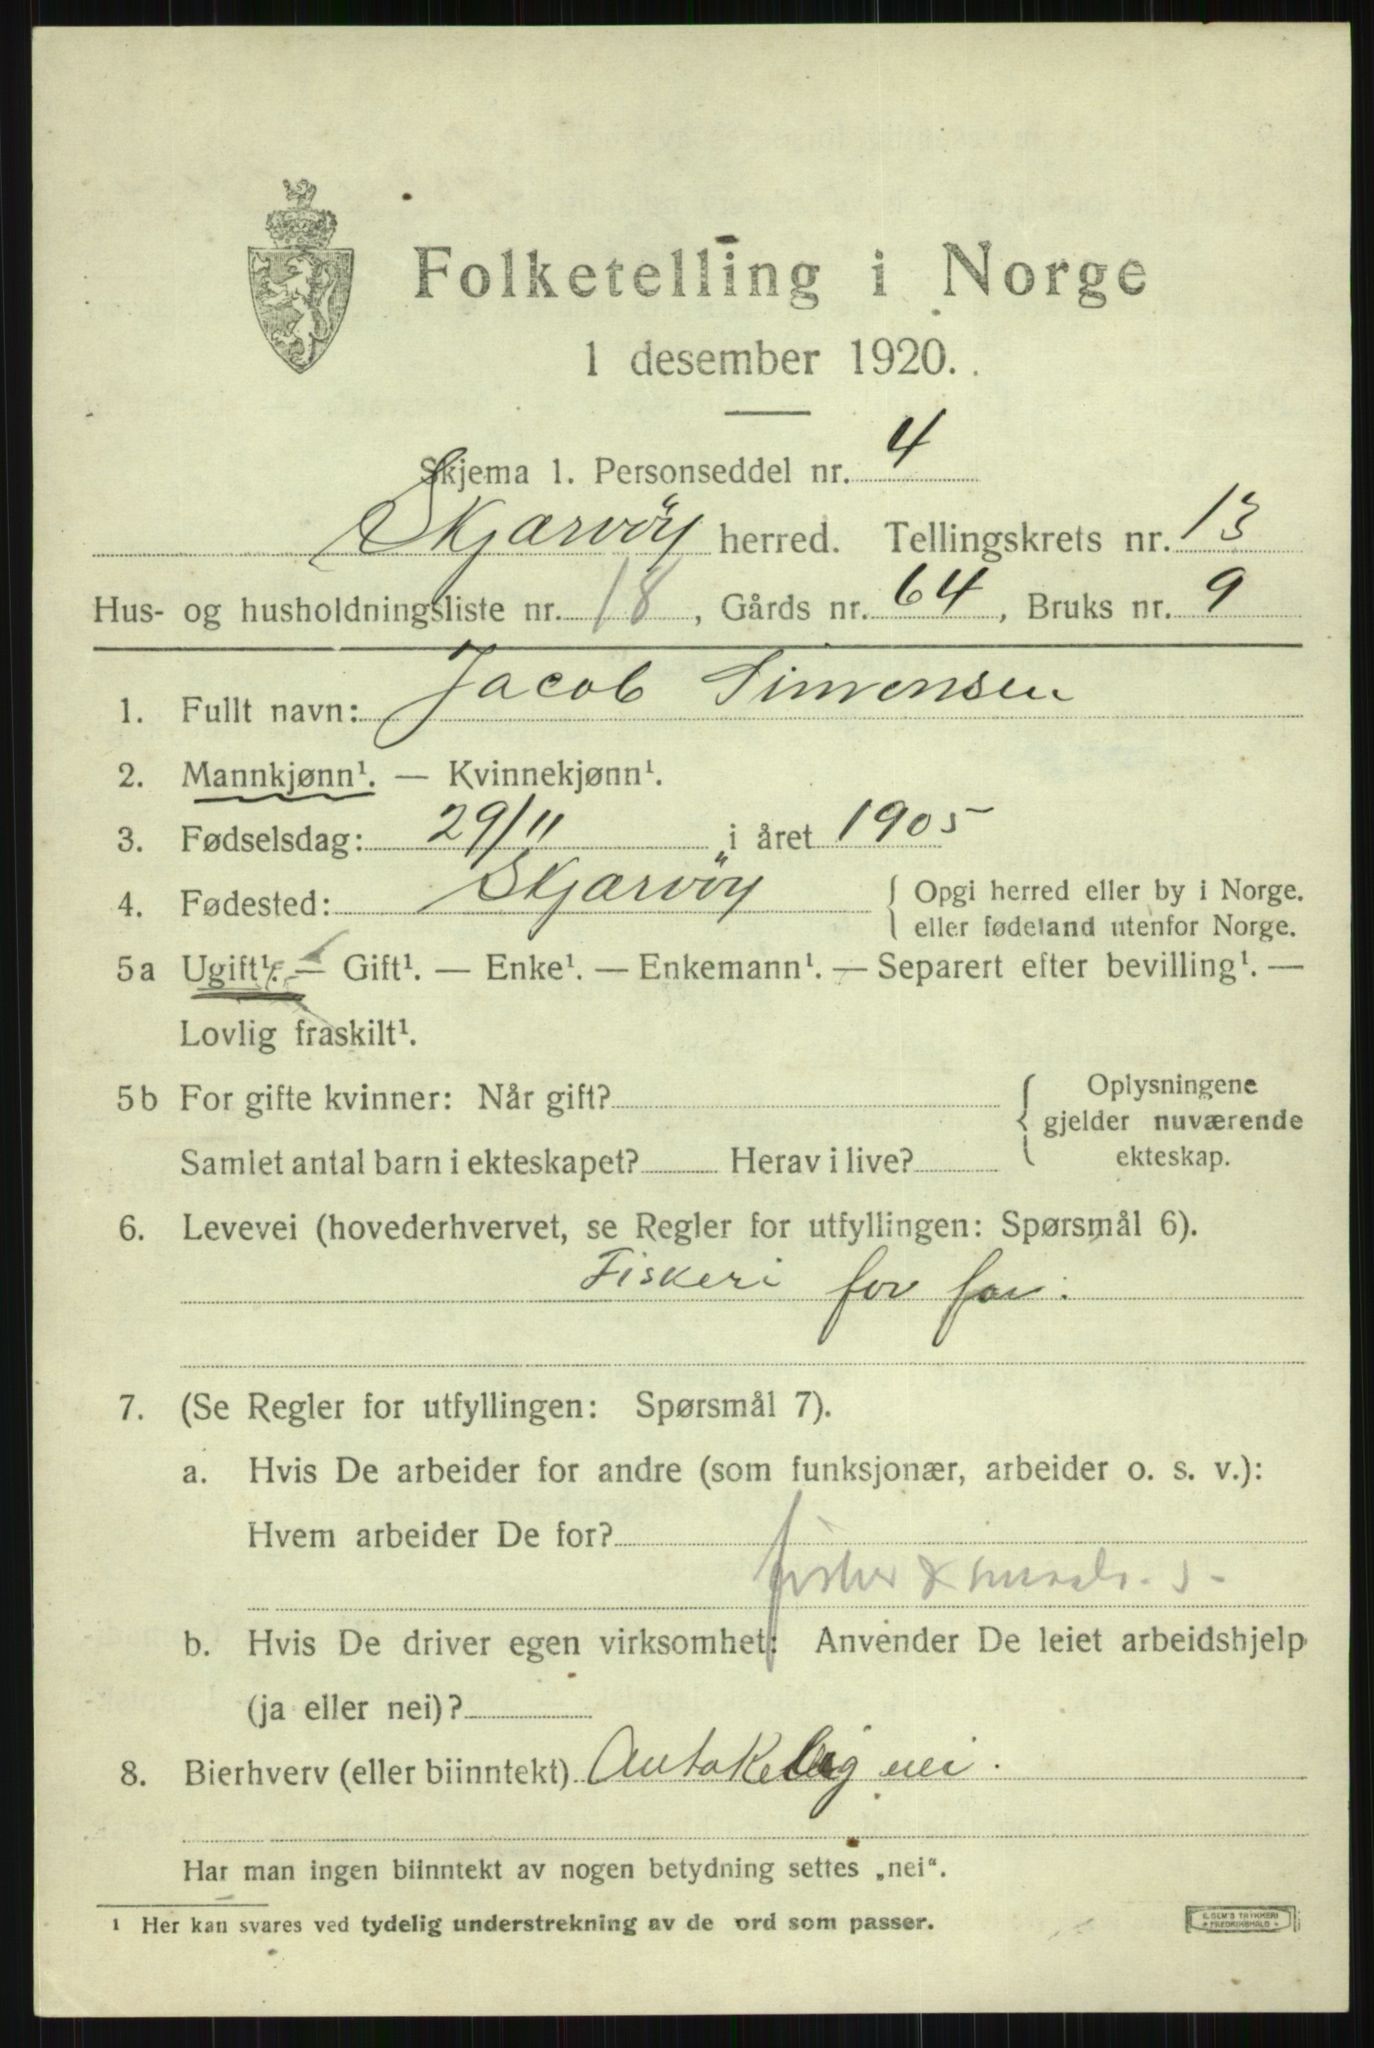 Folketelling i Norge
1 desember 1920.
Skjema 1. Personseddel nr. 4
Skjærvöy herred. Tellingskrets nr. 13
Hus- og husholdningsliste nr. 18, Gårds nr. 64, Bruks nr. 9
1. Fullt navn: Jacob Simonsen
2. Mannkjønn¹. — Kvinnekjønn¹.
3. Fødselsdag: 29/11 i året 1905
4. Fødested: Skjærvöy { Opgi herred eller by i Norge.
eller fødeland utenfor Norge.
5a Ugift¹. — Gift¹. — Enke¹. — Enkemann¹. — Separert efter bevilling¹. —
Lovlig fraskilt¹.
5b For gifte kvinner: Når gift? { Oplysningene
gjelder nuværende
Samlet antal barn i ekteskapet? Herav i live? ekteskap.
6. Levevei (hovederhvervet, se Regler for utfyllingen: Spørsmål 6).
Fiskeri for far.
7. (Se Regler for utfyllingen: Spørsmål 7).
a. Hvis De arbeider for andre (som funksjonær, arbeider o. s. v.):
Hvem arbeider De for?
b. Hvis De driver egen virksomhet: Anvender De leiet arbeidshjelp
(ja eller nei)?
8. Bierhverv (eller biinntekt) nei.
Har man ingen biinntekt av nogen betydning settes „nei".
¹ Her kan svares ved tydelig understrekning av de ord som passer.